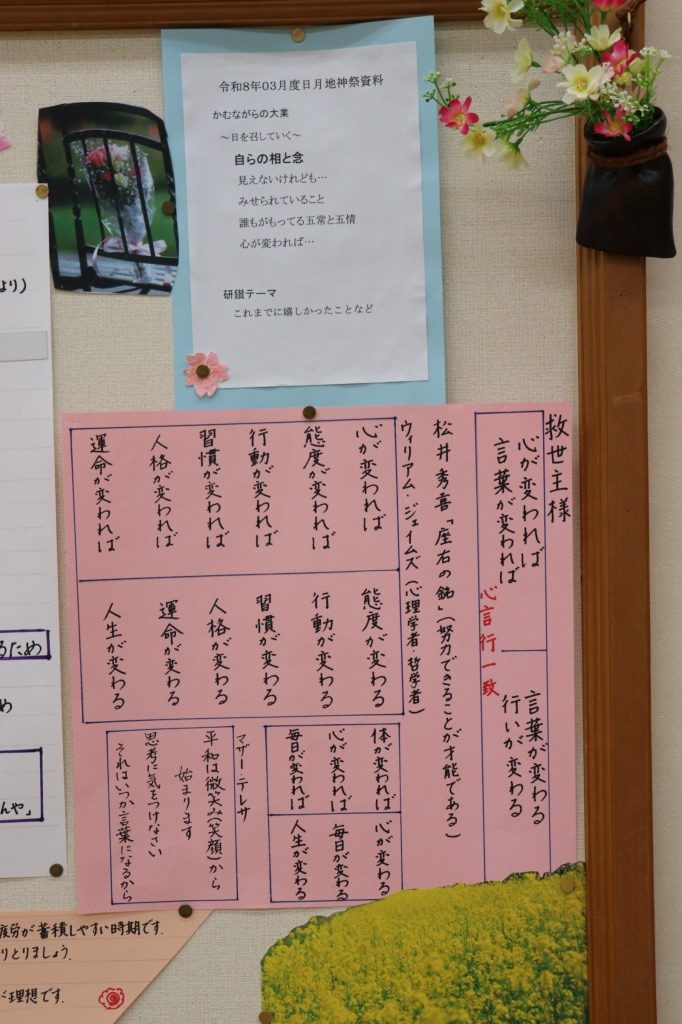 令和8年03月度日月地神祭資料
かむながらの大業
～日を召していく～
自らの相と念
見えないけれども…
みせられていること
誰もがもってる五常と五情
心が変われば…
研鑽テーマ
これまでに嬉しかったことなど
救世主様
心が変われば
言葉が変われば
言葉が変わる
行いが変わる
心言行一致
松井秀喜「座右の銘」(努力できることが才能である)
ウィリアム・ジェイムズ(心理学者・哲学者)
心が変われば
態度が変われば
行動が変われば
習慣が変われば
人格が変われば
運命が変われば
態度が変わる
行動が変わる
習慣が変わる
人格が変わる
運命が変わる
人生が変わる
体が変われば
心が変われば
毎日が変われば
心が変わる
毎日が変わる
人生が変わる
マザー・テレサ
平和は微笑み(笑顔)から
始まります
思考に気をつけなさい
それはいつか言葉になるから
より)
るため
め
んや」
疲労が蓄積しやすい時期です.
りとりましょう.
が理想です.